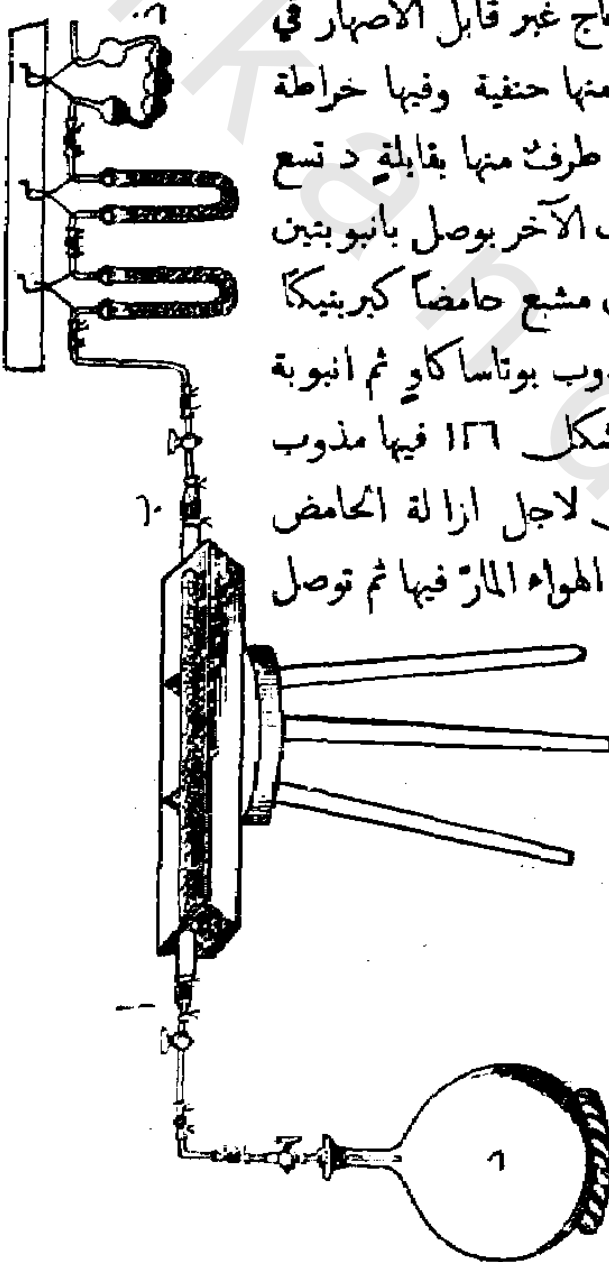 اج غير قابل الاصهار في
منها حنفية وفيها خراطة
طرفٌ منها بقابلةٍ د تسع
الآخر يوصل بانبوبتين
مشبع حامضاً كبريتيكاً
ذوب بوتاسا كاوٍ ثم انبوبة
شكل ١٢٦ فيها مذوب
لاجل ازالة الحامض
الهواء المارّ فيها ثم توصل